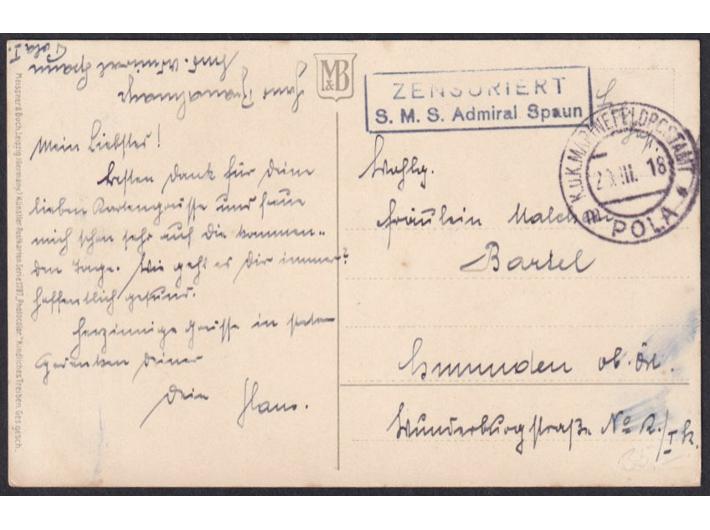 Hans
S.M.S. Admiral Spaun
Pola I.
M&B
Mein Liebster!
Besten Dank für Deine
lieben Kartengrüsse und freue
mich schon sehr auf die kommen-
den Tage. Wie geht es Dir immer?
Hoffentlich gesund.
Herzinnige Grüsse in steten
Gedanken Deiner
Dein Hans.
ZENSURIERT
S. M. S. Admiral Spaun
K.U.K. MARINEFELDPOSTAMT
III. 18
m POLA
Wohlg.
Fräulein
Bartel
Gmunden ob. Öst.
Wunderburgstraße No 2./I St.
Meissner & Buch, Leipzig (Germany) Künstler-Postkarten Serie 2787 „Protocoller“ Kindliches Treiben. Ges. gesch.